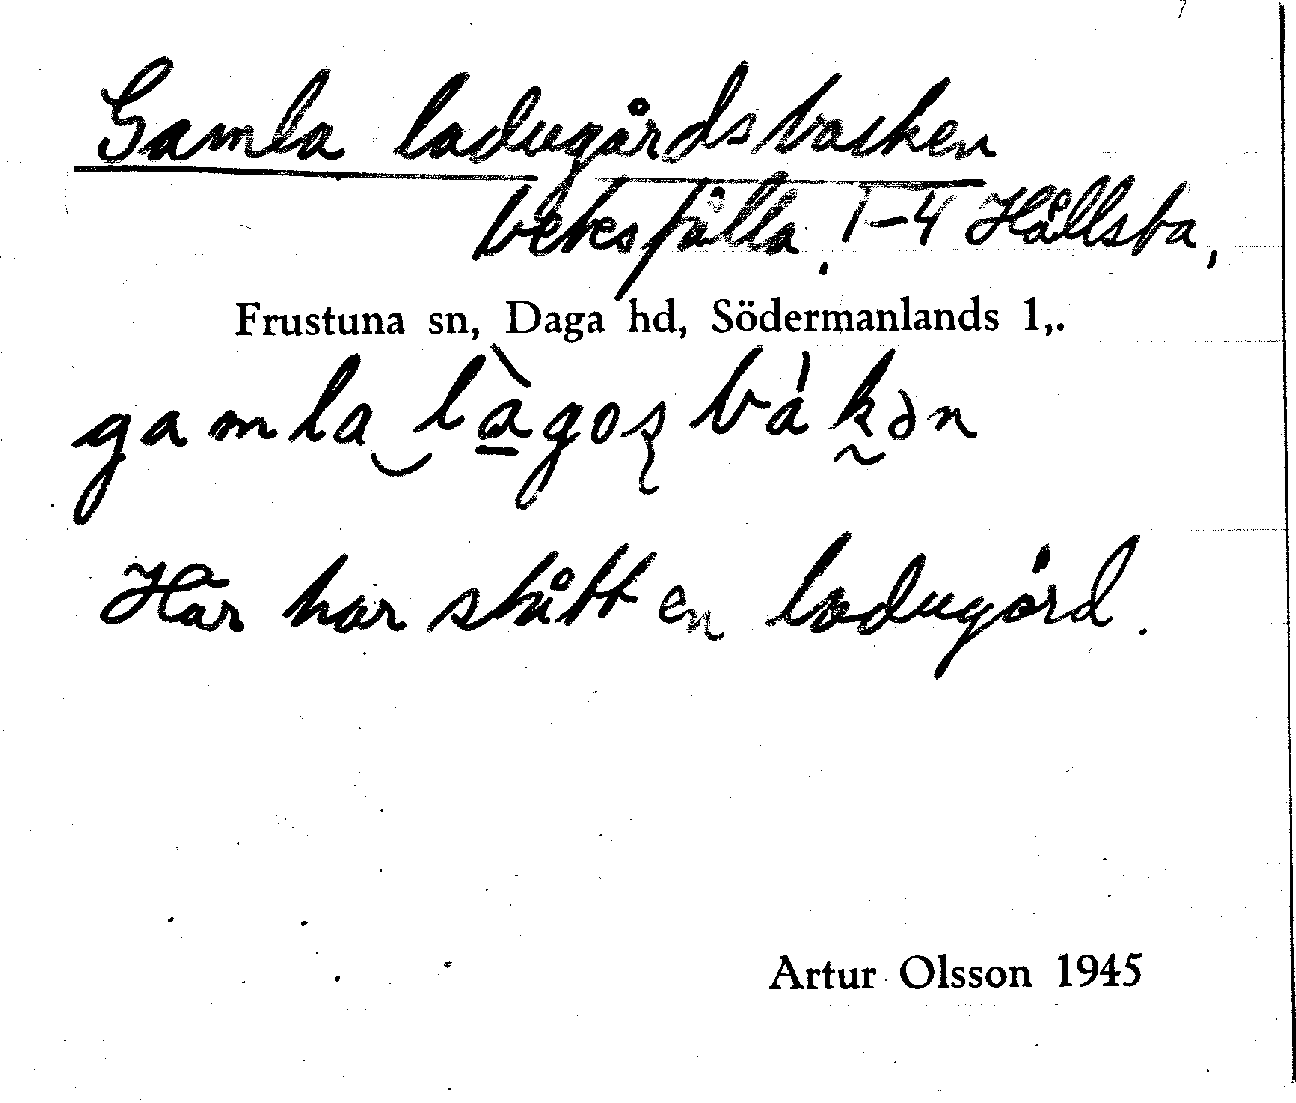 Gamla ladugårdsbacken
betesfålla. 1-4 Hållsta,
Frustuna sn, Daga hd, Södermanlands l,.
gamla làgoʂbákən
Här har stått en ladugård.
Artur Olsson 1945